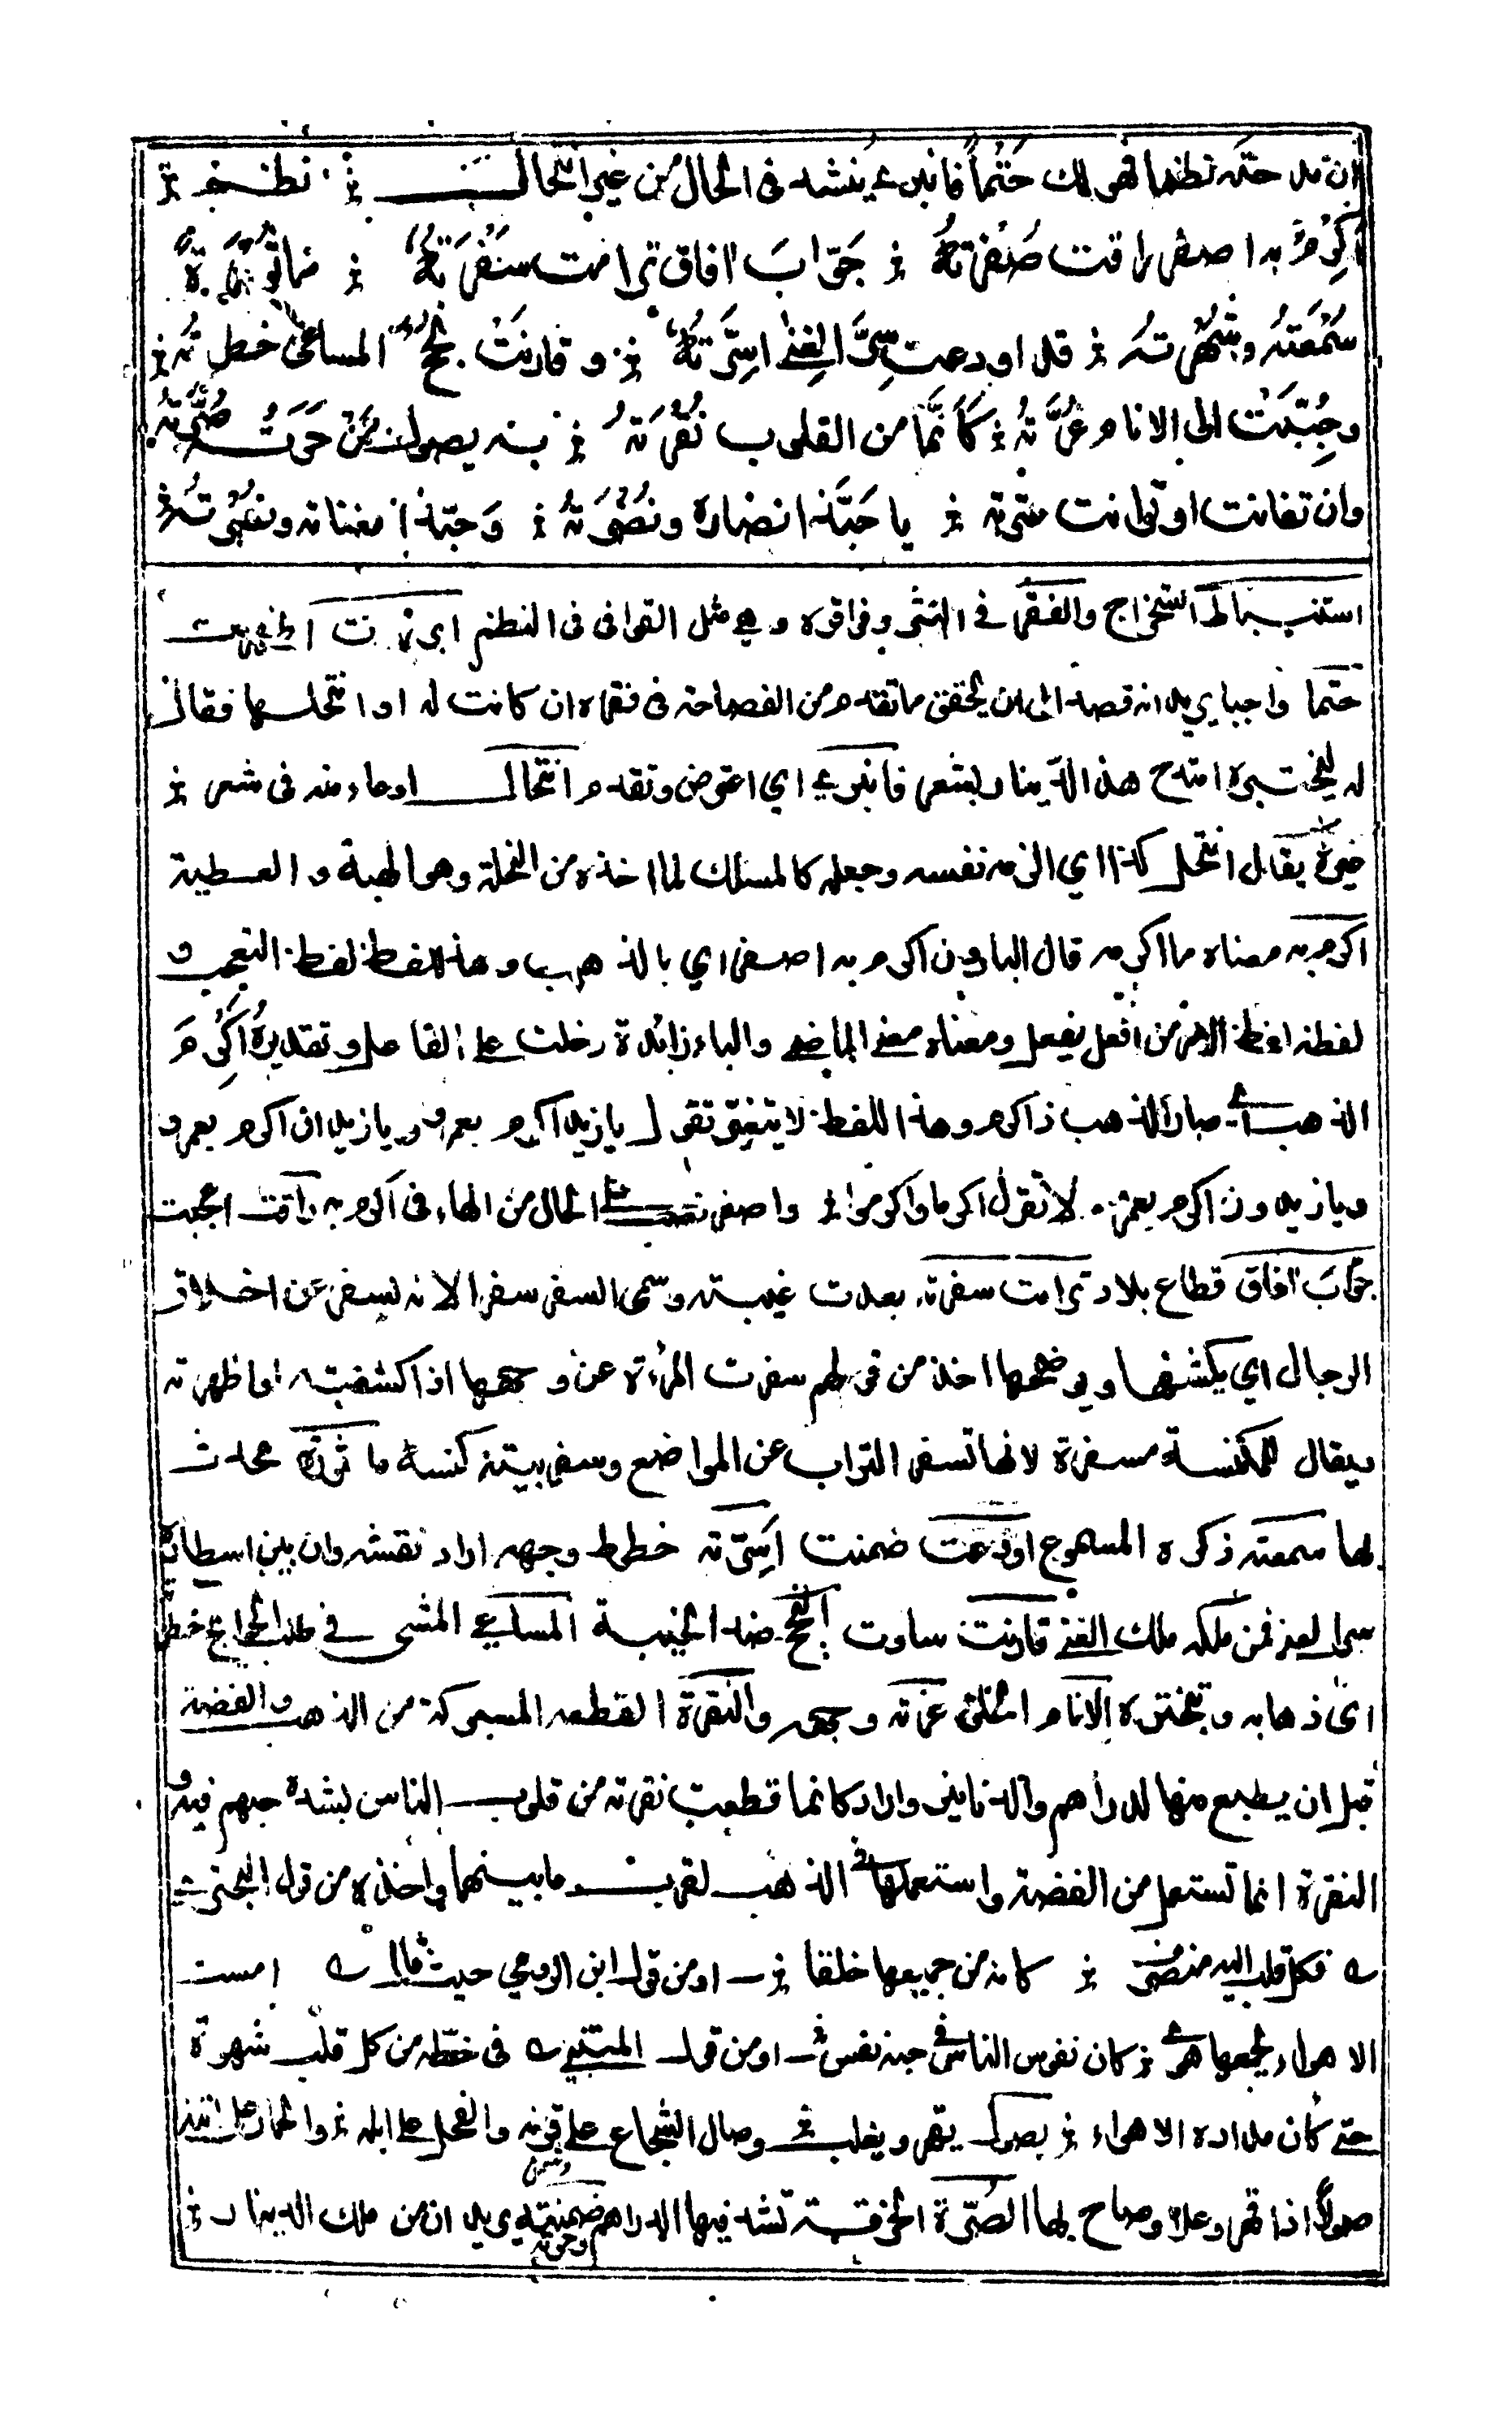 ان مدحته نظما فهو لك حَتْماً فانبرى ينشد فى الحال من غير انتحال نظم
اَكْرِمْ به اصفر راقت صُفْرَتُهُ جَوّابَ آفاق ترامت سَفْرَتُهُ مأثورة
سُمْعَتُهُ وشُهْرتُه قد اودعت سِرَّ الغِنى اَسِرَّتُهُ وقارنَتْ نُجْحَ المساعي خطرتُه
وحُبِّبَتْ الى الانام غُرَّتُهُ كَأَنَّما من القلوب نُقْرَتُهُ به يصول مَنْ حَوَتْه صُرَّتُه
وان تفانت او توانت عترته يا حَبَّذا نضاره ونُضْرَتُهُ وَحبّذا مغناته ونُصْرتُه
استنباط استخراج والفقر في النثر وفواقره وهي مثل القوافى فى النظم ابرزت اظهرت
حتما واجبا يريد انه قصد الى ان يحقق ما تقدم من الفصاحة فى فقره ان كانت له او انتحلها فقال
له ليختبره امتدح هذا الدينار بشعر فانبرى اي اعترض وتقدم انتحال ادعاء منه فى شعر
غيره يقال انتحل كذا اي الزمه نفسه وجعله كالملك لما اخذه من النحلة وهو الهبة والعطية
اكرم به معناه ما اكرمه قال الباري ن اكرم به اصفر اي بالذهب وهذا اللفظ لفظ التعجب و
لفظه لفظ الامر من افعل يفعل ومعناه معنى الماضي والباء زائدة دخلت على الفاعل وتقديره اَكْرَمَ
الذهب اى صار الذهب ذا كرم وهذا اللفظ لا يتغير تقول يا زيد اكرم بعمرو ويا زيدان اكرم بعمرو
ويا زيدون اكرم بعمرو لا تقول اكرما واكرموا واصفر نصب على الحال من الهاء فى اكرم به راقت اعجبت
جوّابَ آفاق قطاع بلاد ترامت سفرته بعدت غيبته وسمى السفر سفرا لانه يسفر عن اخلاق
الرجال اي يكشفها ويوضحها اخذ من قولهم سفرت المرءة عن وجهها اذا كشفته واظهرته
ويقال للمكنسة مسفرة لانها تسفر التراب عن المواضع وسفر بيته كنسه مأثورة محدث
بها سمعته ذكره المسموع اودعت ضمنت اَسِرّته خطوط وجهه اراد نقشه وان بين اسطاره
سر الغنى فمن ملكه ملك الغنى قارنت ساوت النجح ضد الخيبة المساعي المشى في طلب الحوائج خطرته
اى ذهابه وتبختره الانام الخلق غرته وجهه والنقرة القطعه المسبوكة من الذهب والفضة
قبل ان يطبع منها الدراهم والدنانير واراد كانما قطعت نقرته من قلوب الناس لشدة حبهم فيه و
النقرة انما تستعمل من الفضة واستعملها فى الذهب لقرب ما بينهما واخذه من قول البحتري
فكل قلب اليه منصرف كانه من جميعها خلقا او من قول ابن الرومي حيث قال امست
الاهواء يجمعها هوى كان نفوس الناس فى حبه نفس او من قول المتنبي فى خطه من كل قلب شهوة
حتى كان مداده الاهواء يصول يقهر ويغلب وصال الشجاع على قرنه والفحل على ابله والحمار على اتنه
صولاً اذا قهر وعلا وصاح بها الصُرّة الخرقة تشد فيها الدراهم ضمنته وحوته يريد ان من ملك الدينار